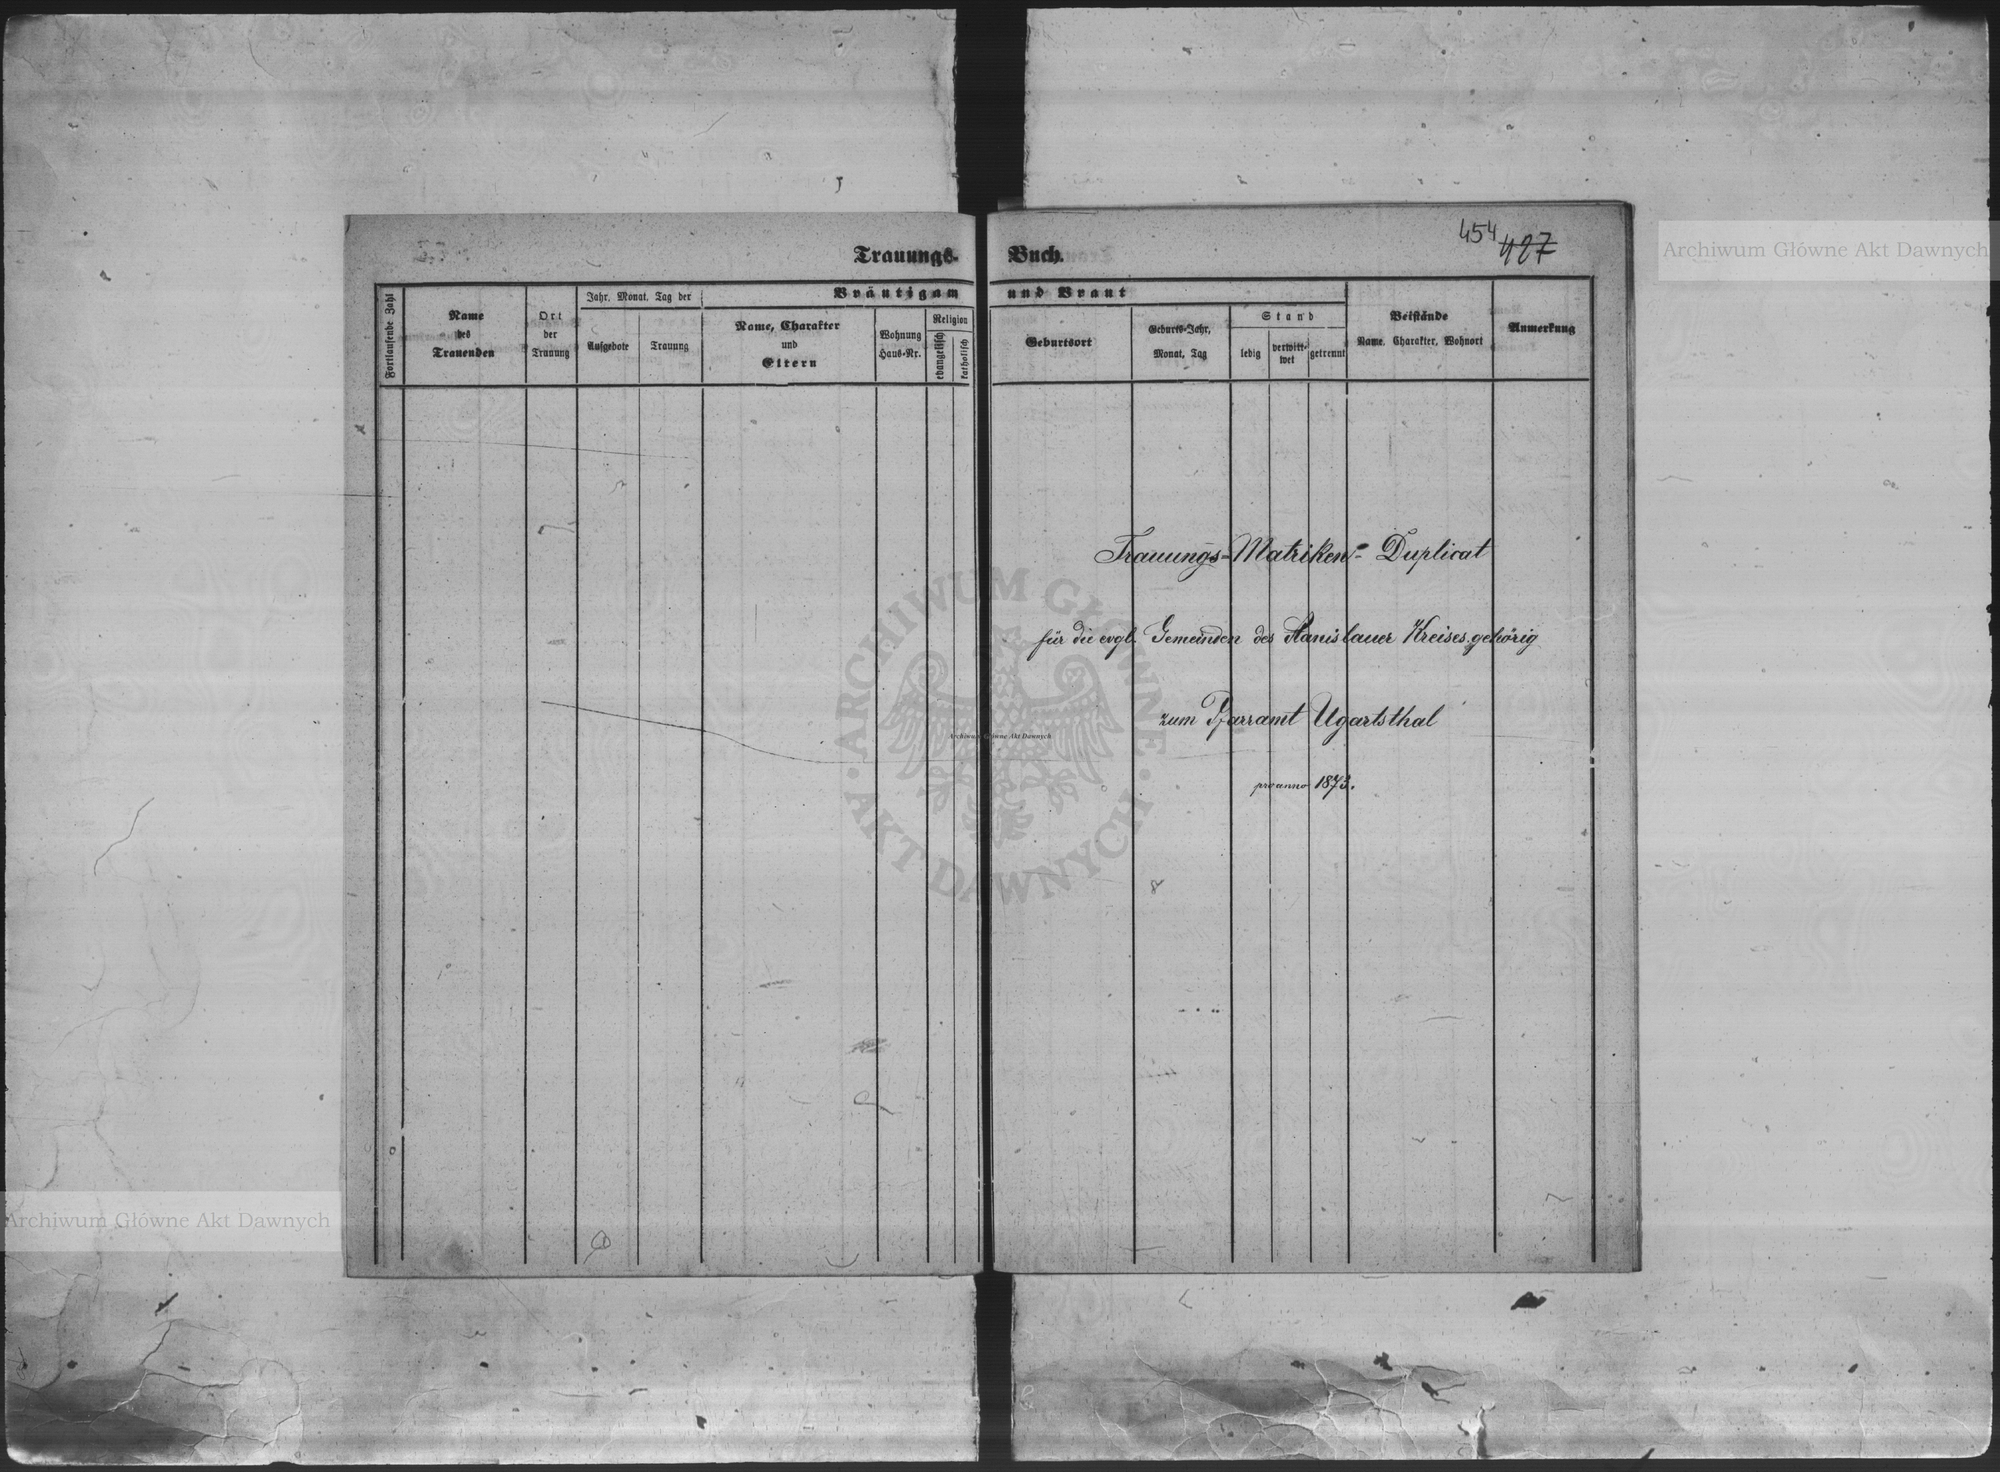 Trauungs-
Buch.
454
427
Archiwum Główne Akt Dawnych
Fortlaufende Zahl
Name
des
Trauenden
Ort
der
Trauung
Jahr, Monat, Tag der
Aufgebote
Trauung
Bräutigam
und Braut
Name, Charakter
und
Eltern
Wohnung
Haus-Nr.
Religion
evangelisch
katholisch
Geburtsort
Geburts-Jahr,
Monat, Tag
Stand
ledig
verwitt-
wet
getrennt
Beistände
Name, Charakter, Wohnort
Anmerkung
Trauungs-Matriken-Duplicat
für die evgl. Gemeinden des Stanislauer Kreises, gehörig
zum Pfarramt Ugartsthal
pro anno 1873.
ARCHIWUM GŁÓWNE
AKT DAWNYCH
Archiwum Główne Akt Dawnych
Archiwum Główne Akt Dawnych